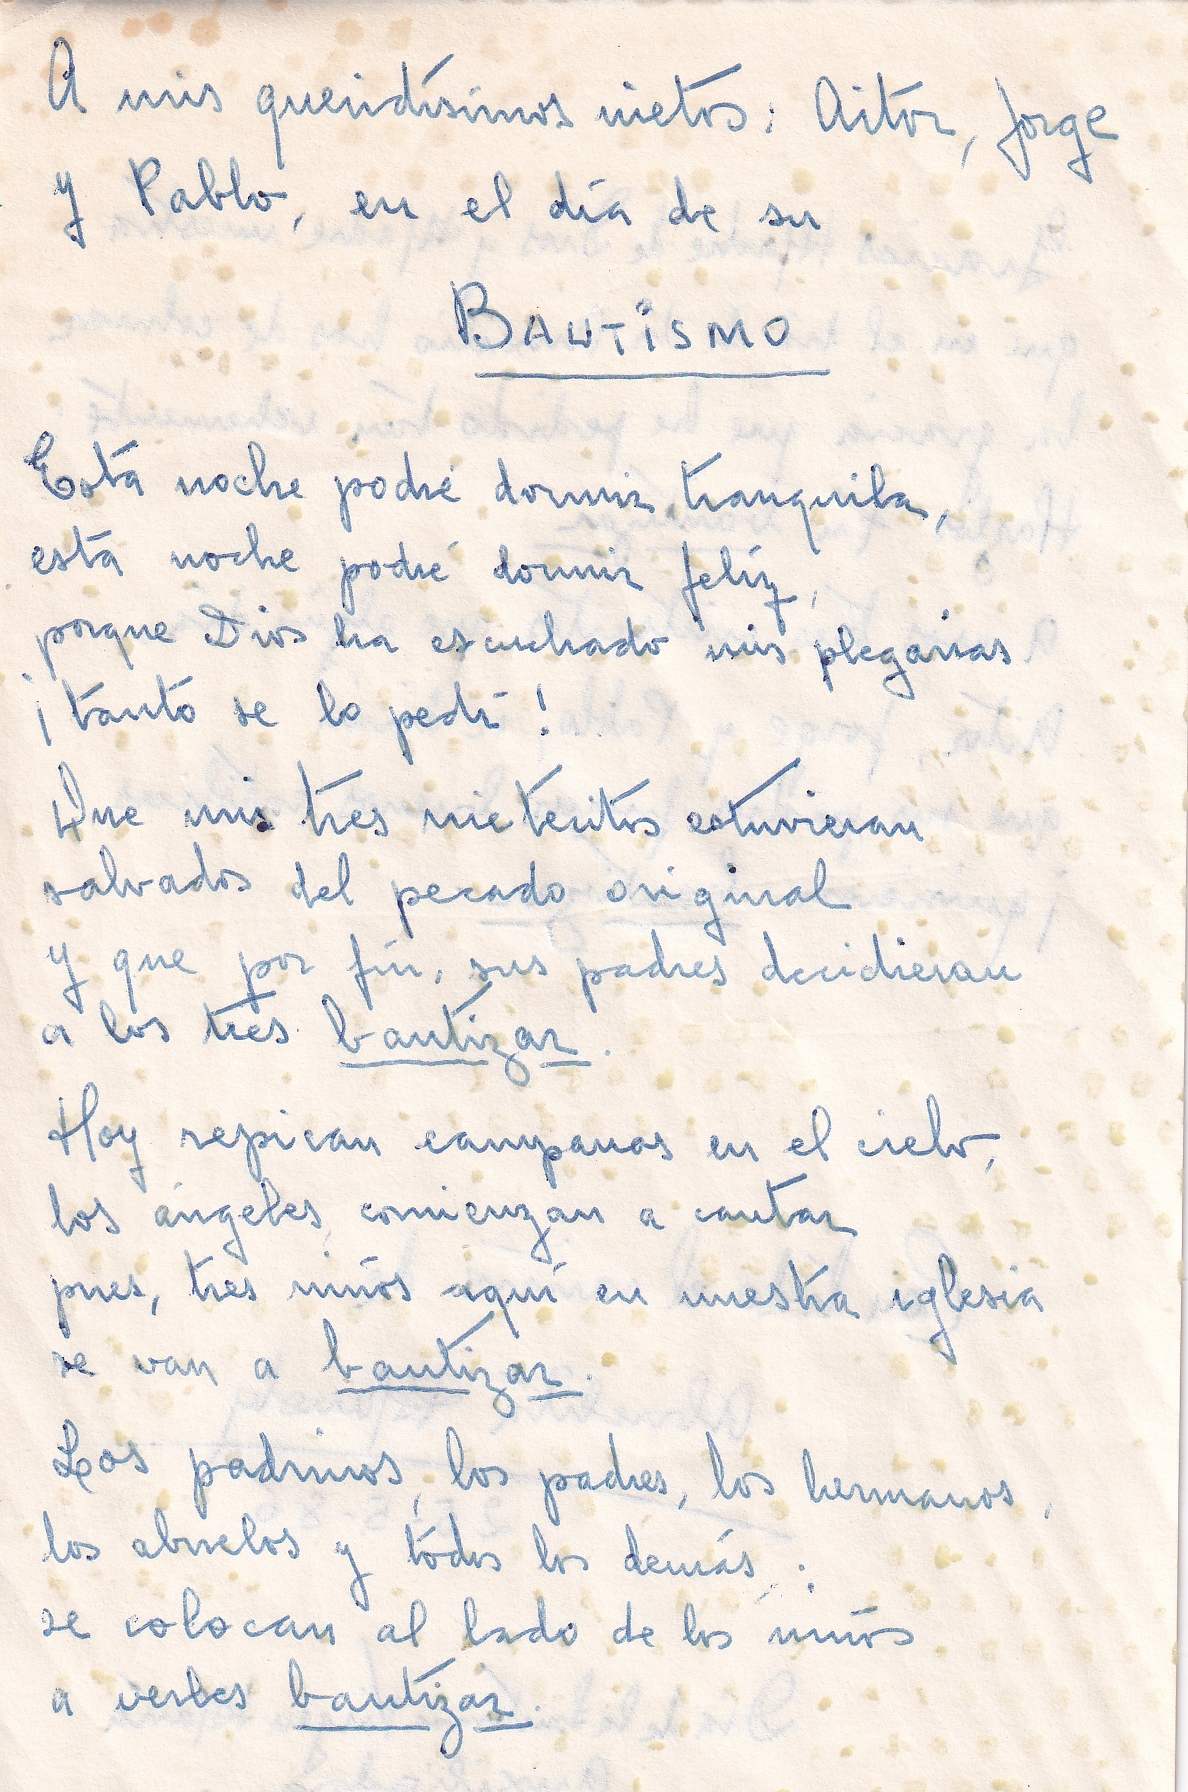 A mis queridísimos nietos: Aitor, Jorge
y Pablo, en el día de su
BAUTISMO
Esta noche podré dormir tranquila,
esta noche podré dormir felíz,
porque Dios ha escuchado mis plegarias
¡tanto se lo pedí!
Que mis tres nietecitos estuvieran
salvados del pecado original
y que por fín, sus padres decidieran
a los tres bautizar.
Hoy repican campanas en el cielo,
los ángeles comienzan a cantar
pues, tres niños aquí en nuestra iglesia
se van a bautizar.
Los padrinos, los padres, los hermanos,
los abuelos y todos los demás;
se colocan al lado de los niños
a verles bautizar.